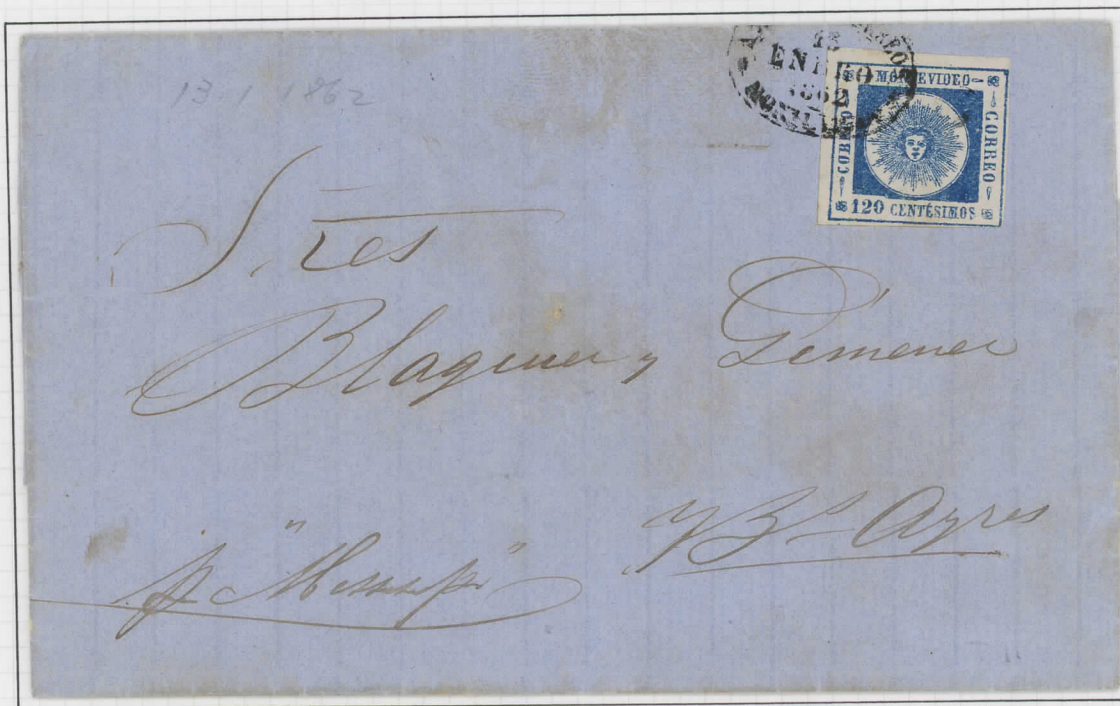 13 1 1862
13
ENERO
1862
MONTEVIDEO
CORREO
CORREO
120 CENTÉSIMOS
S. res
Blaguer y Gimenez
Bs Ayres
p.